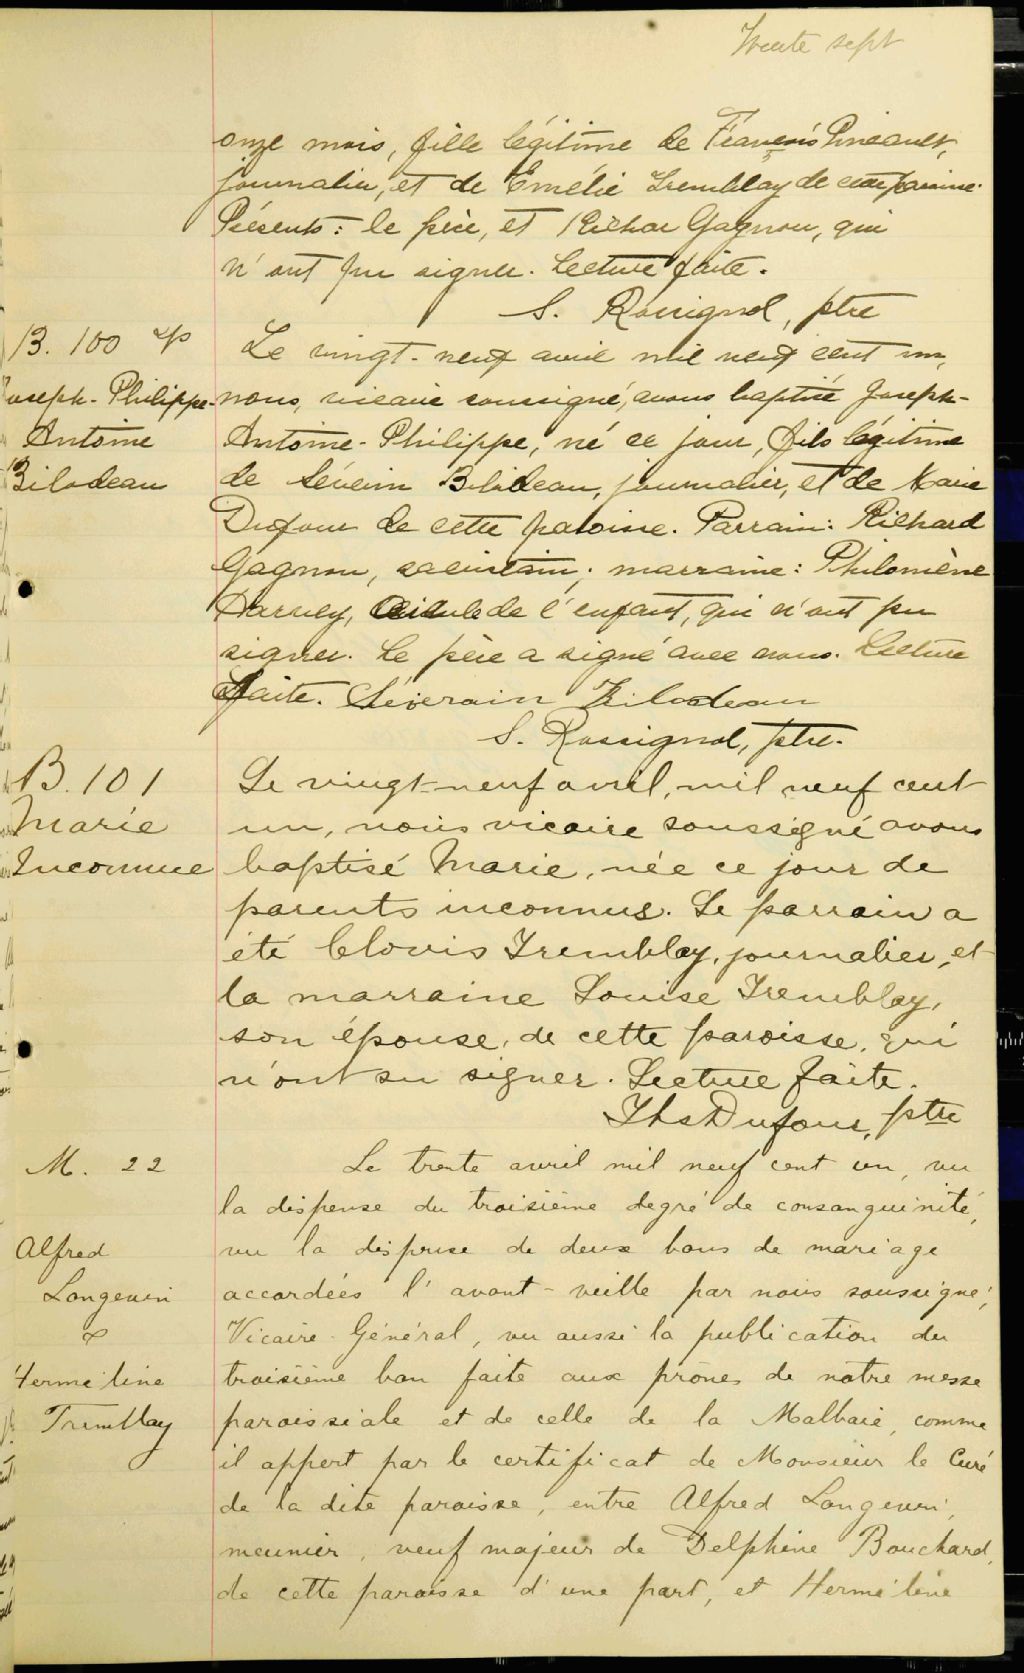 Trente sept
onze mois, fille légitime de François Pineault,
journalier, et de Émélie Tremblay de cette paroisse.
Présents: le père, et Richar Gagnon, qui
n'ont pu signer. Lecture faite.
S. Rossignol, ptre
B. 100
Joseph-Philippe-
Antoine
Bilodeau
Le vingt-neuf avril mil neuf cent un,
nous, vicaire soussigné, avons baptisé Joseph-
Antoine-Philippe, né ce jour, fils légitime
de Séverin Bilodeau, journalier, et de Marie
Dufour de cette paroisse. Parrain: Richard
Gagnon, sacristain; marraine: Philomène
Harvey, aïeule de l'enfant, qui n'ont pu
signer. Le père a signé avec nous. Lecture
faite. Séverain Bilodeau
S. Rossignol, ptre.
B. 101
Marie
Inconnue
Le vingt-neuf avril, mil neuf cent
un, nous vicaire soussigné avons
baptisé Marie, née ce jour de
parents inconnus. Le parrain a
été Clovis Tremblay, journalier, et
la marraine Louise Tremblay,
son épouse, de cette paroisse, qui
n'ont su signer. Lecture faite.
Ths Dufour, ptre
M. 22
Alfred
Langevin
&
Herméline
Tremblay
Le trente avril mil neuf cent un, vu
la dispense du troisième degré de consanguinité,
vu la dispense de deux bans de mariage
accordées l'avant-veille par nous soussigné,
Vicaire Général, vu aussi la publication du
troisième ban faite aux prônes de notre messe
paroissiale et de celle de la Malbaie, comme
il appert par le certificat de Monsieur le Curé
de la dite paroisse, entre Alfred Langevin,
meunier, veuf majeur de Delphine Bouchard,
de cette paroisse d'une part, et Herméline